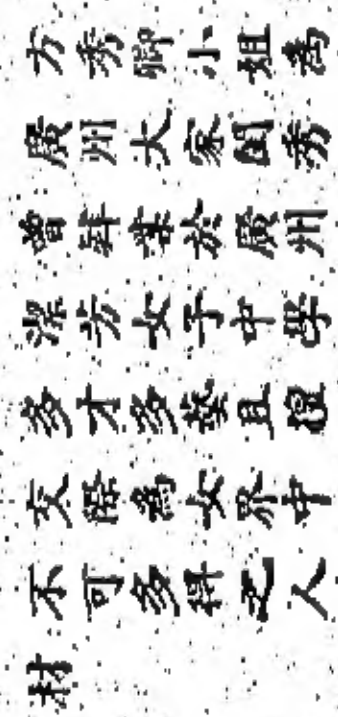 方秀卿小姐為
廣州大家閨秀
曾肄業於廣州
潔芳女子中學
多才多藝且擅
交際為女界中
不可多得之人
材